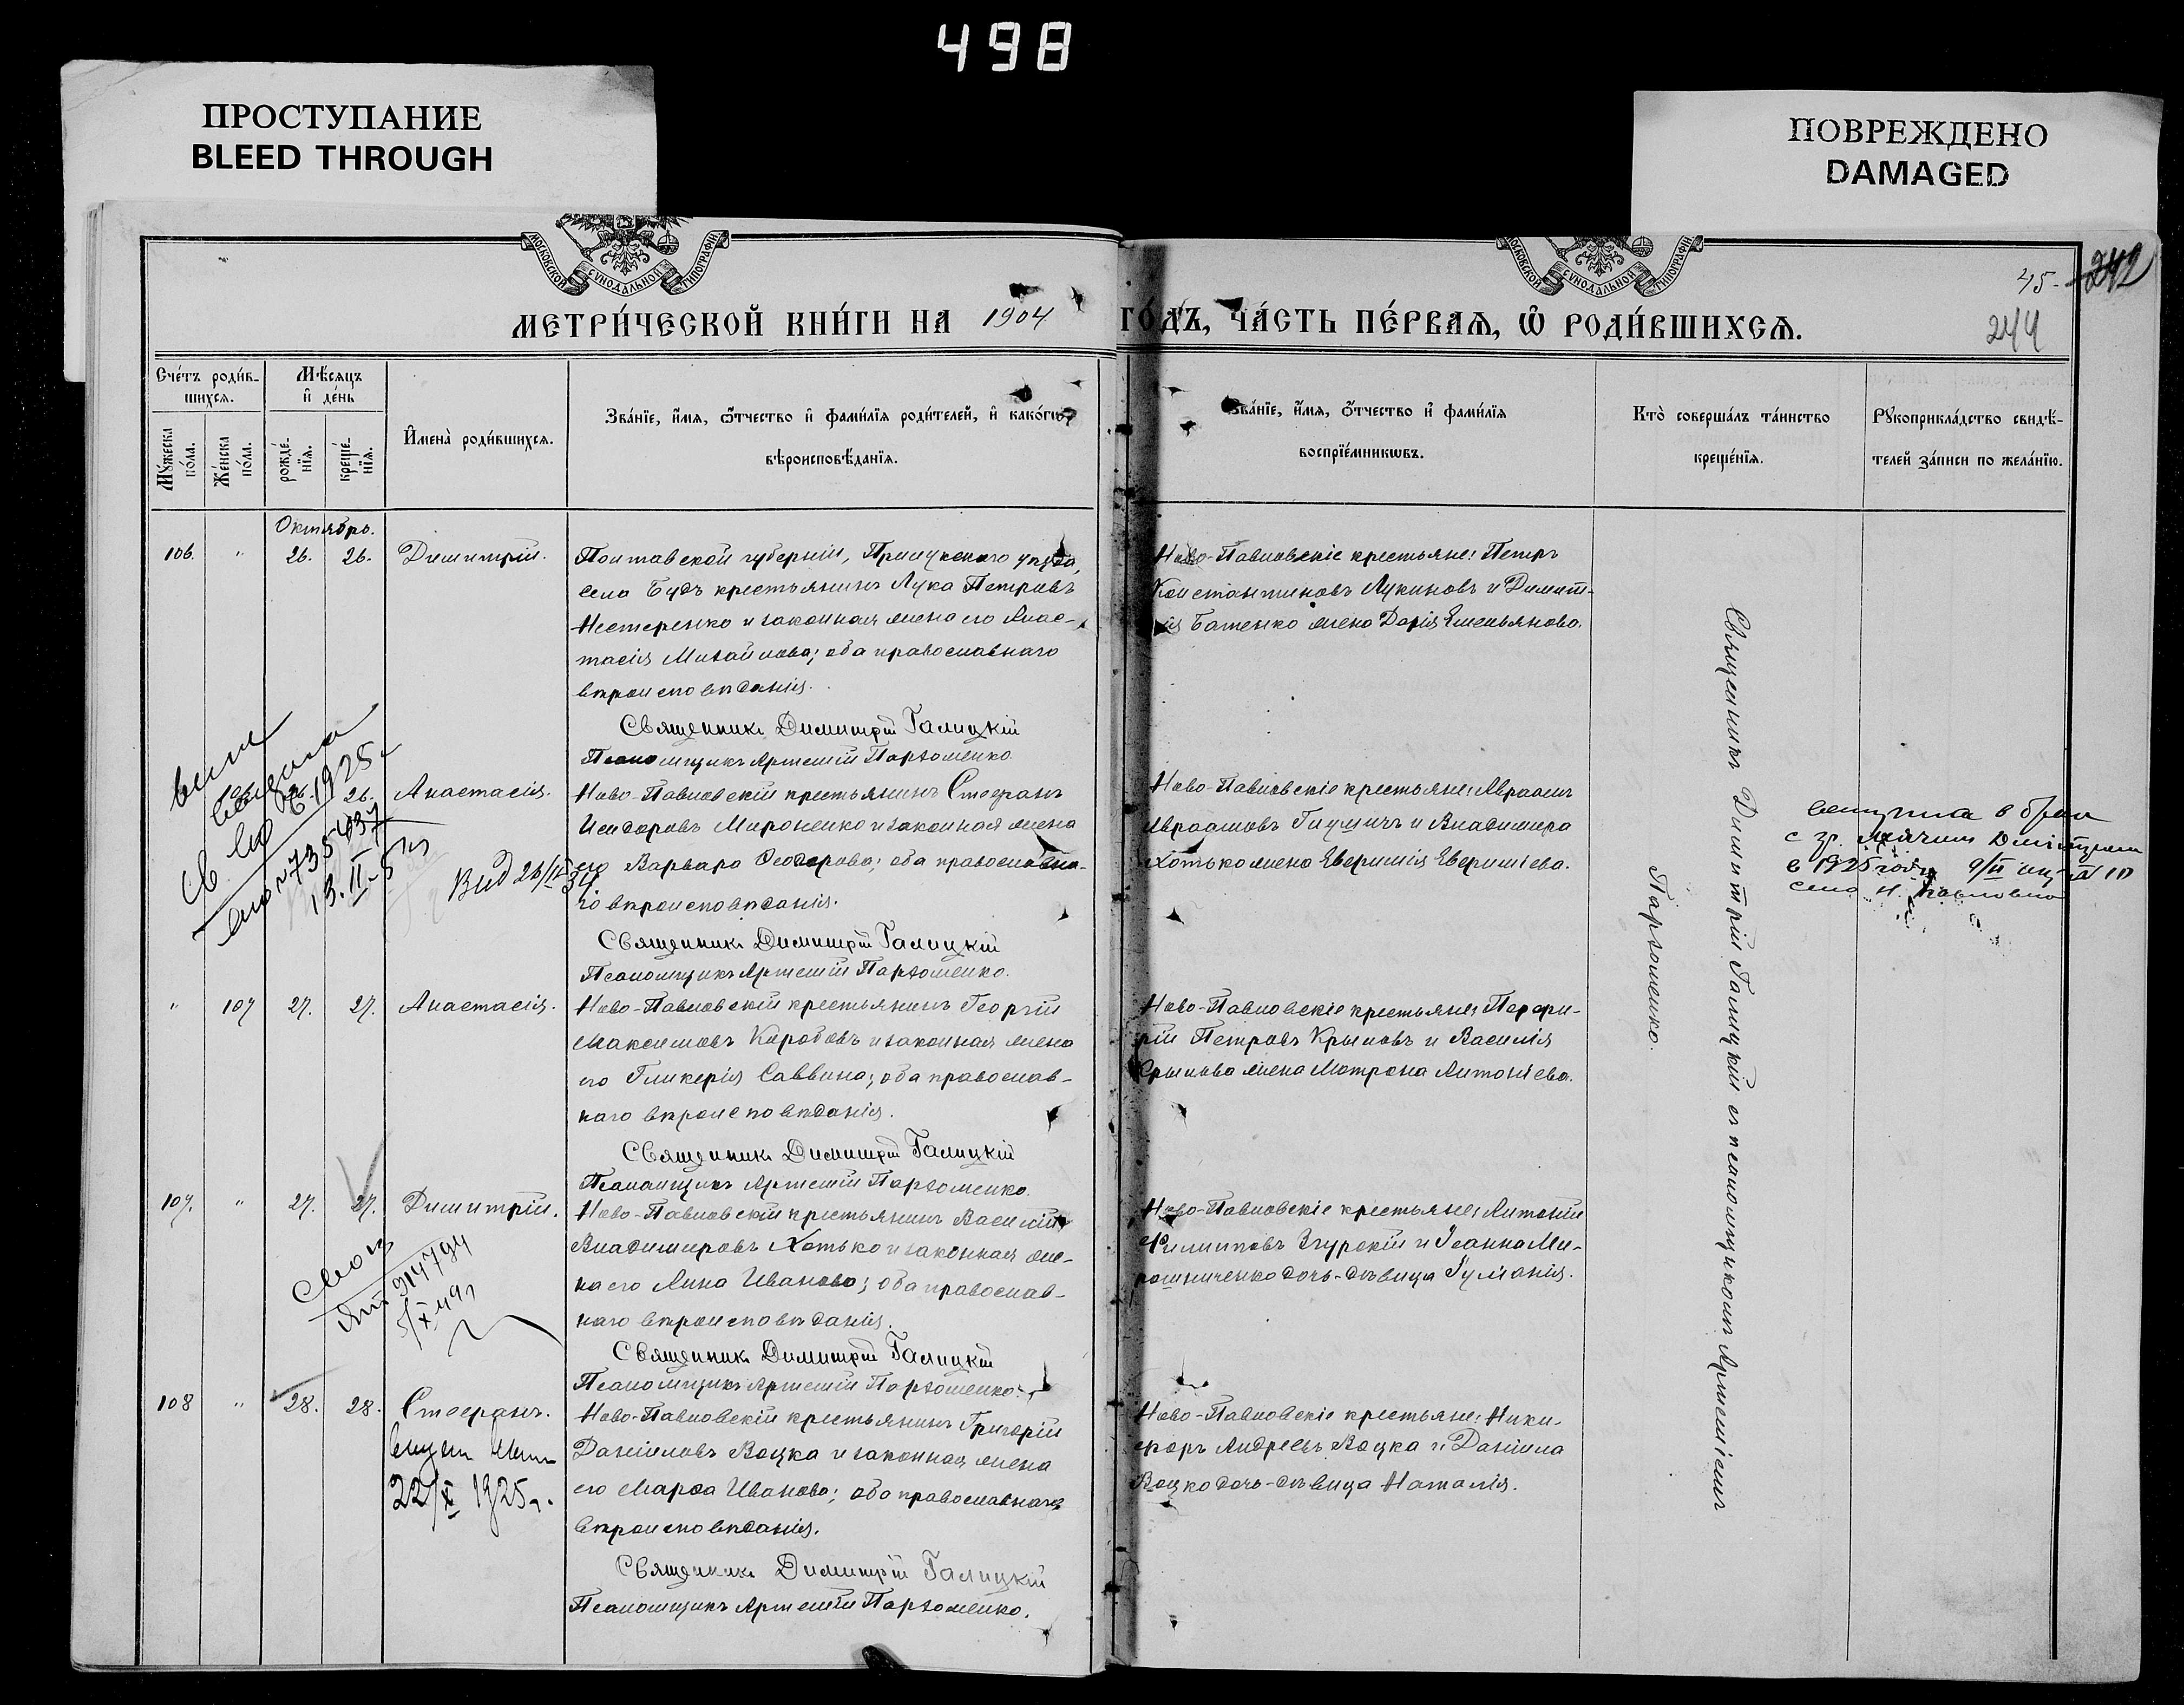 498
ПРОСТУПАНИЕ
BLEED THROUGH
ПОВРЕЖДЕНО
DAMAGED
МОСКОВСКОЙ СУНОДАЛЬНОЙ ТИПОГРАФІИ
МОСКОВСКОЙ СУНОДАЛЬНОЙ ТИПОГРАФІИ
45-
242
244
МЕТРИ́ЧЕСКОЙ КНИ́ГИ НА 1904 ГО́ДЪ, ЧА́СТЬ ПЕ́РВАѦ, Ѡ РОДИ́ВШИХСѦ.
Сче́тъ роди́в-
шихсѧ.
Мꙋ́жеска по́ла.
Же́нска по́ла.
Мѣ́сѧцъ
и҆ де́нь
рожде́-
нїѧ.
креще́-
нїѧ.
И҆мена̀ роди́вшихсѧ.
Зва́нїе, и҆́мѧ, ѻ҆́тчество и҆ фами́лїѧ роди́телей, и҆ како́гѡ
вѣроисповѣ́данїѧ.
Зва́нїе, и҆́мѧ, ѻ҆́тчество и҆ фами́лїѧ
воспрїе́мникѡвъ.
Кто̀ соверша́лъ та́инство
креще́нїѧ.
Рꙋкоприкла́дство свидѣ́-
телей за́писи по жела́нїю.
Октябрь.
106. " 26. 26. Димитрій.
Полтавской губерніи, Прилукскаго уѣзда,
села Будъ крестьянинъ Лука Петровъ
Нестеренко и законная жена его Анас-
тасія Михайлова; оба православнаго
вѣроисповѣданія.
Священникъ Димитрій Галицкій
Псаломщикъ Артемій Пархоменко.
Ново-Павловскіе крестьяне: Петръ
Константиновъ Лукиновъ и Димит-
рія Батенко жена Дарія Емельянова.
26. Анастасія.
Ново-Павловскій крестьянинъ Стефанъ
Исидоровъ Мироненко и законная жена
его Варвара Ѳеодорова; оба православна-
го вѣроисповѣданія.
Священникъ Димитрій Галицкій
Псаломщикъ Артемій Пархоменко.
Ново-Павловскіе крестьяне: Авраамъ
Авраамовъ Глущичъ и Владимира
Хотько жена Евфимія Евфиміева.
1925
735437
13.II-
Вид 26/II 34
вступила в брак
с гр.
в 1925 году 9/II
село Н. Павловка
" 107 27. 27. Анастасія.
Ново-Павловскій крестьянинъ Георгій
Максимовъ Коробовъ и законная жена
его Гликерія Саввина; оба православ-
наго вѣроисповѣданія.
Священникъ Димитрій Галицкій
Псаломщикъ Артемій Пархоменко.
Ново-Павловскіе крестьяне: Порфи-
рій Петровъ Крыловъ и Василія
Крылова жена Мотрона Антоніева.
107. " 27. 27. Димитрій.
Ново-Павловскій крестьянинъ Василій
Владимировъ Хотько и законная же-
на его Анна Иванова; оба православ-
наго вѣроисповѣданія.
Священникъ Димитрій Галицкій
Псаломщикъ Артемій Пархоменко.
Ново-Павловскіе крестьяне: Антоній
Филипповъ Згурскій и Іоанна Ми-
рошниченко дочь-дѣвица Іуліанія.
914794
5/XI 49
108 " 28. 28. Стефанъ.
22/X 1925 г.
Ново-Павловскій крестьянинъ Григорій
Даніиловъ Воцка и законная жена
его Марѳа Иванова; оба православнаго
вѣроисповѣданія.
Священникъ Димитрій Галицкій
Псаломщикъ Артемій Пархоменко.
Ново-Павловскіе крестьяне: Ники-
форъ Андреевъ Воцка и Даніила
Воцко дочь-дѣвица Наталія.
Священникъ Димитрій Галицкій съ псаломщикомъ Артеміемъ
Пархоменко.